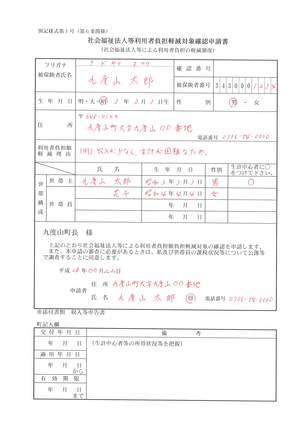 別記様式第1号(第6条関係)
社会福祉法人等利用者負担軽減対象確認申請書
(社会福祉法人等による利用者負担の軽減制度)
フリガナ
被保険者氏名 九度山 太郎
確認番号
被保険者番号
生年月日 明・大・昭
性別 男・女
住所
九度山町大字九度山〇〇番地
電話番号 0736-54-0000
利用者負担額軽減理由 (例) 収入が少なく、生計が困難なため。
世帯構成
性別 生計中心者に○をつけて下さい。
世帯主 九度山 太郎 昭和1年1月1日 男 〇
世帯員 花子 昭和4年4月4日 女
九度山町長 様
上記のとおり社会福祉法人等による利用者負担額負担軽減対象の確認を申請します。
また、本申請の審査に必要があるときは、私及び世帯員の課税状況等について公簿等で調査することに同意します。
平成28年〇〇月△△日
住所 九度山町大字九度山〇〇番地
氏名 九度山 太郎 印 電話番号 0736-54-0000
申請付書類 収入等申告書
町記入欄
交付年月日 備考
年 月 日 (生計中心者等の所得状況等を把握)
適用年月日
年 月 日
有効期限
年 月 日
まで